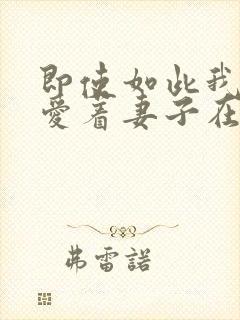 即使如此我
愛着妻子在
弗雷諾